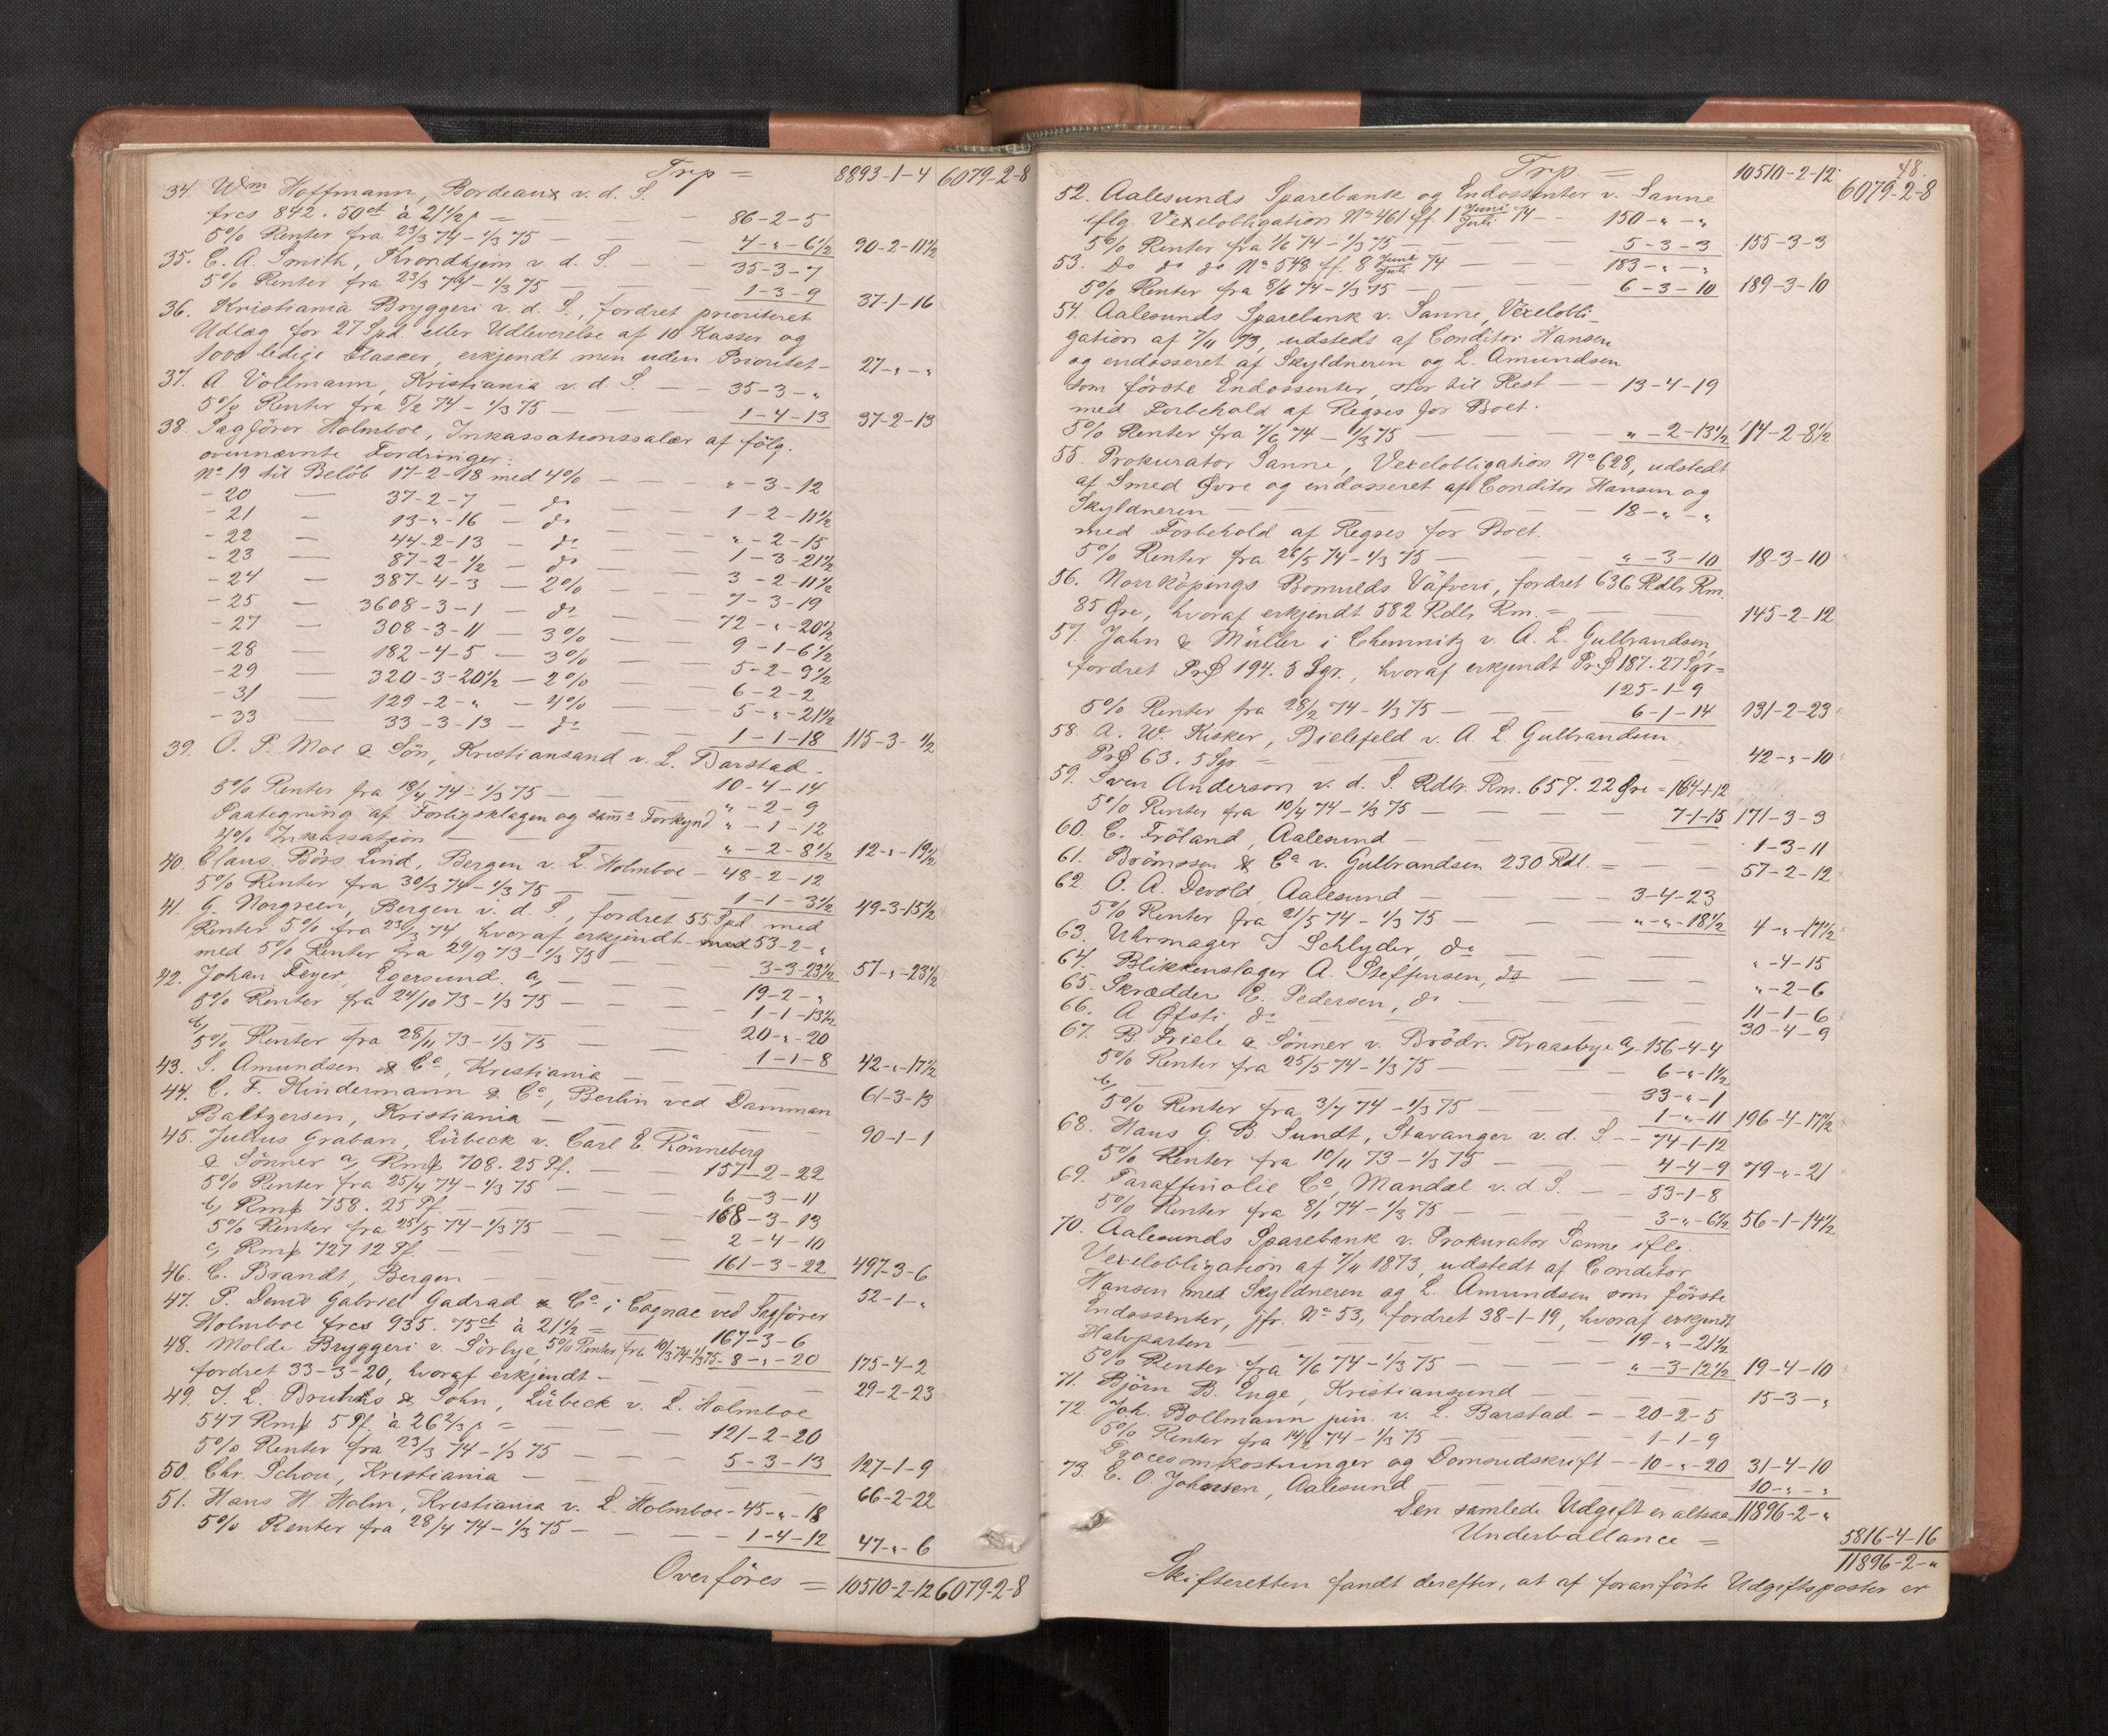 Trp = 8893-1-4 6079-2-8
34. Wm Hoffmann, Bordeaux v. d. S.
frcs 842. 50ct à 21½ ρ = — — 86-2-5
5% Renter fra 23/3 74 - 1/3 75 — — 4-"-6½ 90-2-11½
35. C. A. Smith, Throndhjem v. d. S. — — 35-3-7
5% Renter fra 23/3 74 - 1/3 75 — — 1-3-9 37-1-16
36. Kristiania Bryggeri v. d. S., fordret prioriteret
Udlæg for 27 Spd. eller Udleverelse af 10 Kasser og
1000 ledige Flasker, erkjendt men uden Prioritet - 27-"-"
37. A. Vollmann, Kristiania v. d. S. — — 35-3-"
5% Renter fra 5/2 74 - 1/3 75 — — 1-4-13 37-2-13
38. Sagförer Holmboe, Inkassationssalær af fölg.
ovennævnte Fordringer:
No 19 til Belöb 17-2-18 med 4% — — "-3-12
- 20 — 37-2-7 — do — 1-2-11½
- 21 — 13-"-16 — do — "-2-15
- 22 — 44-2-13 — do — 1-3-21½
- 23 — 87-2-½ — do — 3-2-11½
- 24 — 387-4-3 — 2% — 7-3-19
- 25 — 3608-3-1 — do — 72-"-20½
- 27 — 308-3-11 — 3% — 9-1-6½
- 28 — 182-4-5 — 3% — 5-2-9½
- 29 — 320-3-20½ — 2% — 6-2-2
- 31 — 129-2-" — 4% — 5-"-21½
- 33 — 33-3-13 — do — 1-1-18 115-3-½
39. O. P. Moe & Sön, Kristiansand v. L. Barstad -
10-4-14
5% Renter fra 18/4 74 - 1/3 75 — "-2-9
Paategning af Forligsklagen og samme Forkynd "-1-12
4% Inkassation — — "-2-8½ 12-"-19½
40. Claus Börs Lind, Bergen v. L. Holmboe - 48-2-12
5% Renter fra 30/3 74 - 1/3 75 — — 1-1-3½ 49-3-15½
41. G. Norgreen, Bergen v. d. S., fordret 55 Spd med
Renter 5% fra 23/3 74, hvoraf erkjendt med 53-2-"
med 5% Renter fra 29/9 73 - 1/3 75 — 3-3-23½ 57-"-23½
42. Johan Feyer, Egersund. a, — — 19-2-"
5% Renter fra 24/10 73 - 1/3 75 — — 1-1-13½
b, — — 20-"-20
5% Renter fra 28/11 73 - 1/3 75 — — 1-1-8 42-"-17½
43. S. Amundsen & Co, Kristiania — — 61-3-13
44. C. F. Kindermann & Co, Berlin ved Damman
Baltzersen, Kristiania — — 90-1-1
45. Julius Graban, Lübeck v. Carl E Rönneberg
& Sönner a, Rmk 708. 25 Pf. — — 157-2-22
5% Renter fra 25/4 74 - 1/3 75 — — 6-3-11
b, Rmk 758. 25 Pf. — — 168-3-13
5% Renter fra 25/5 74 - 1/3 75 — — 2-4-10
c, Rmk 727 12 Pf. — — 161-3-22 497-3-6
46. C. Brandt, Bergen — — 52-1-"
47. P. Denis Gabriel Gadrad & Co i Cognac ved Sagförer
Holmboe frcs 935. 75ct à 21½ = 167-3-6
5% Renter fra 10/3 74-1/3 75 - 8-"-20 175-4-2
48. Molde Bryggeri v. Sörlye,
fordret 33-3-20, hvoraf erkjendt — — 29-2-23
49. J. L. Bruhns & Sohn, Lübeck v. L. Holmboe
547 Rmk 5 Pf. à 26⅔ ρ = — 121-2-20
5% Renter fra 23/3 74 - 1/3 75 — — 5-3-13 127-1-9
50. Chr. Schou, Kristiania — — 66-2-22
51. Hans H. Holm, Kristiania v. L. Holmboe - 45-"-18
5% Renter fra 28/4 74 - 1/3 75 — — 1-4-12 47-"-6
Overföres = 10510-2-12 6079-2-8
48.
Trp = 10510-2-12 6079-2-8
52. Aalesunds Sparebank og Endossenter v. Sanne
iflg. Vexelobligation No 461 ff. 1 Juni/Juli 74 — 150-"-"
5% Renter fra 1/6 74 - 1/3 75 — — 5-3-3 155-3-3
53. Do do do No 548 ff. 8 Juni/Juli 74 — 183-"-"
5% Renter fra 8/6 74 - 1/3 75 — — 6-3-10 189-3-10
54. Aalesunds Sparebank v. Sanne, Vexelobli-
gation af 7/11 73, udstedt af Conditor Hansen
og endosseret af Skyldneren og L. Amundsen
som förste Endossenter, stor til Rest — 13-4-19
med Forbehold af Regres for Boet.
5% Renter fra 7/6 74 - 1/3 75 — — "-2-13½ 14-2-8½
55. Prokurator Sanne, Vexelobligation No 628, udstedt
af Smed Øvre og endosseret af Conditor Hansen og
Skyldneren — — 18-"-"
med Forbehold af Regres for Boet.
5% Renter fra 26/5 74 - 1/3 75 — — "-3-10 18-3-10
56. Norrköpings Bomulds Väfveri, fordret 636 Rdlr Rm.
85 Øre, hvoraf erkjendt 582 Rdlr Rm. = — 145-2-12
57. Jahn & Müller i Chemnitz v. A. L. Gulbrandsen,
fordret Pr$ 194. 5 Sgr., hvoraf erkjendt Pr$ 187. 27 Sgr. =
125-1-9
5% Renter fra 28/2 74 - 1/3 75 — — 6-1-14 131-2-23
58. A. W. Kisker, Bielefeld v. A. L. Gulbrandsen,
Pr$ 63. 5 Sgr. = — — 42-"-10
59. Sven Anderson v. d. S. Rdlr. Rm. 657. 22 Øre = 164-1-12
5% Renter fra 10/4 74 - 1/3 75 — — 7-1-15 171-3-3
60. C. Fröland, Aalesund — — 1-3-11
61. Brömssen & Co v. Gulbrandsen 230 Rdl. = — 57-2-12
62. O. A. Devold, Aalesund — — 3-4-23
5% Renter fra 21/5 74 - 1/3 75 — — "-"-18½ 4-"-17½
63. Uhrmager J Schlyder, do — — "-4-15
64. Blikkenslager A. Steffensen, do — — "-2-6
65. Skrædder E. Pedersen, do — — 11-1-6
66. A Øfsti do — — 30-4-9
67. B. Friele & Sönner v. Brödr. Kraasbye a, 156-4-4
5% Renter fra 25/5 74 - 1/3 75 — — 6-"-1½
b, — — 33-"-1
5% Renter fra 3/7 74 - 1/3 75 — — 1-"-11 196-4-17½
68. Hans G. B. Sundt, Stavanger v. d. S. — 74-1-12
5% Renter fra 10/11 73 - 1/3 75 — — 4-4-9 79-"-21
69. Paraffinolie Co, Mandal v. d. S. — — 53-1-8
5% Renter fra 8/1 74 - 1/3 75 — — 3-"-6½ 56-1-14½
70. Aalesunds Sparebank v. Prokurator Sanne iflg.
Vexelobligation af 7/11 1873, udstedt af Conditor
Hansen med Skyldneren og L. Amundsen som förste
Endossenter, jfr. No 53, fordret 38-1-19, hvoraf erkjendt
Halvparten — — 19-"-21½
5% Renter fra 7/6 74 - 1/3 75 — — "-3-12½ 19-4-10
71. Björn B. Enge, Kristiansund — — 15-3-"
72. Joh. Bollmann jun. v. L. Barstad — 20-2-5
5% Renter fra 14/2 74 - 1/3 75 — 1-1-9
Procesomkostninger og Domsudskrift — 10-"-20 31-4-10
73. E. O. Johnsen, Aalesund — — 10-"-"
Den samlede Udgift er altsaa 11896-2-"
Underballance = 5816-4-16
11896-2-"
Skifteretten fandt derefter, at af foranförte Udgiftsposter er